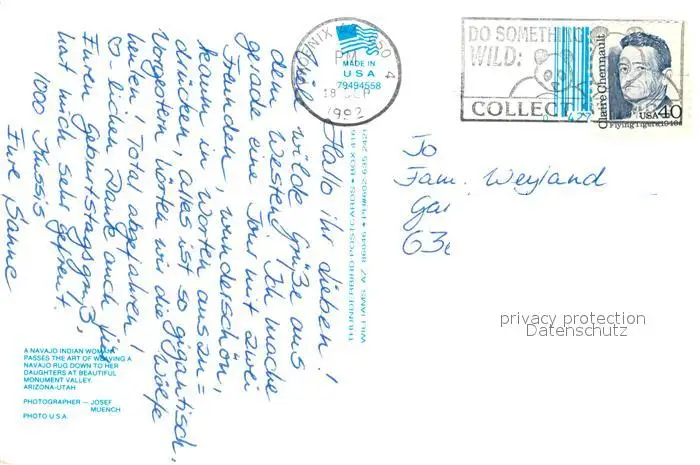 Hallo ihr Lieben!
Viele wilde Grüße aus
dem Westen! Ich mache
gerade eine Tour mit zwei
Freunden, wunderschön,
kaum in Worten auszu=
drücken, alles ist so gigantisch.
Vorgestern hörten wir die Wölfe
heulen. Total abgefahren!
♡-lichen Dank auch für
Euren Geburtstagsgruß,
hat mich sehr gefreut!
1000 Kussis
Eure Sanne
A NAVAJO INDIAN WOMAN
PASSES THE ART OF WEAVING A
NAVAJO RUG DOWN TO HER
DAUGHTERS AT BEAUTIFUL
MONUMENT VALLEY.
ARIZONA-UTAH
PHOTOGRAPHER — JOSEF
MUENCH
PHOTO U.S.A.
THUNDERBIRD POSTCARDS • BOX 416
WILLIAMS, AZ 86046 • PH#602-635-2421
MADE IN
USA
79494558
PM
18
1992
DO SOMETHING
WILD:
COLLECT
Claire Chennault
USA 40
Flying Tigers 1940s
To
Fam. Weyland
privacy protection
Datenschutz